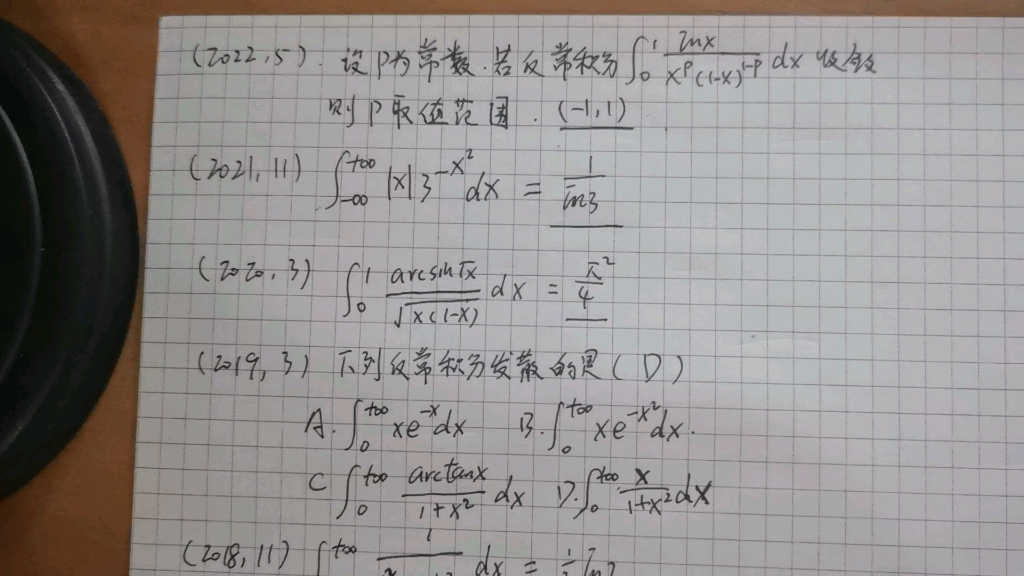 (2022,5). 设P为常数.若反常积分∫₀¹ lnx/(x^p(1-x)^(1-p)) dx 收敛
则P取值范围. (-1,1)
(2021,11) ∫_{-∞}^{+∞} |x|3^{-x²}dx = 1/ln3
(2020,3) ∫₀¹ arcsin√x/√(x(1-x)) dx = π²/4
(2019,3) 下列反常积分发散的是(D)
A. ∫₀^{+∞} xe^{-x}dx B. ∫₀^{+∞} xe^{-x²}dx.
C ∫₀^{+∞} arctanx/(1+x²) dx D. ∫₀^{+∞} x/(1+x²) dx
(2018,11) ∫^{+∞} 1/ dx = ½ln2